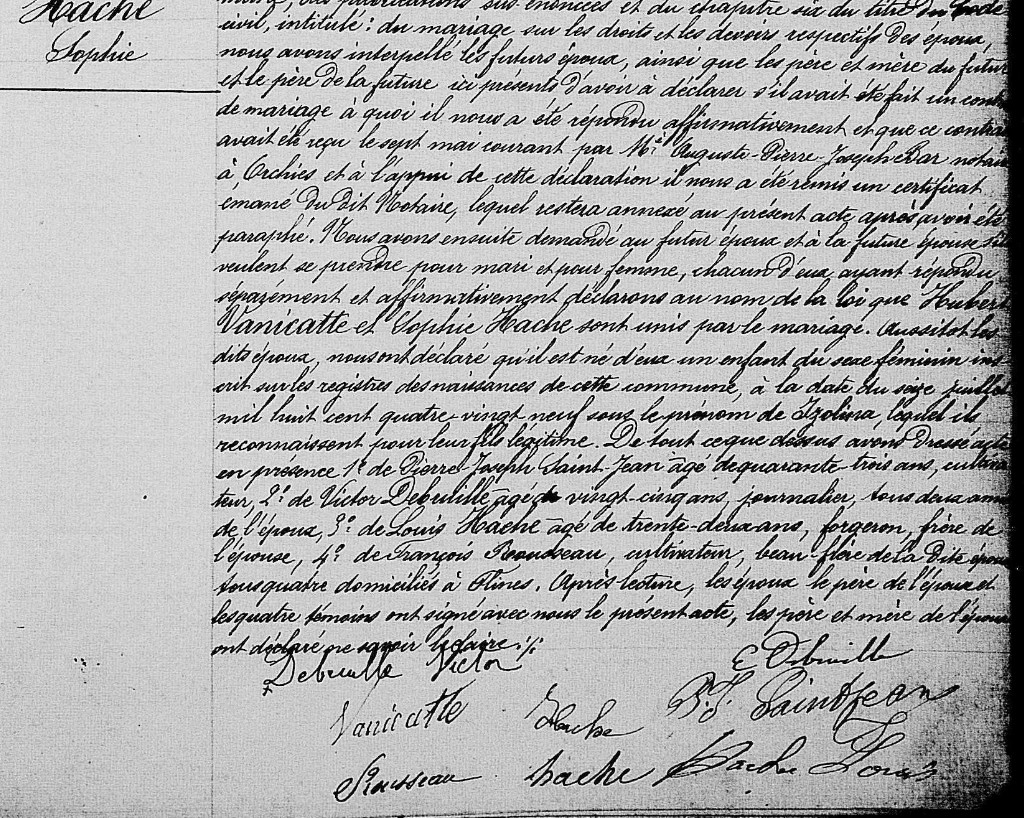 Hache
Sophie
civil, intitulé : du mariage sur les droits et les devoirs respectifs des époux,
nous avons interpellé les futurs époux, ainsi que les père et mère du futur
et le père de la future ici présents d'avoir à déclarer s'il avait été fait un
de mariage à quoi il nous a été répondu affirmativement et que ce
avait été reçu le sept mai courant par Mtre Auguste-Pierre-Joseph Bar
à Orchies et à l'appui de cette déclaration il nous a été remis un certificat
émané du dit Notaire, lequel restera annexé au présent acte après avoir été
paraphé. Nous avons ensuite demandé au futur époux et à la future épouse s'ils
veulent se prendre pour mari et pour femme, chacun d'eux ayant répondu
séparément et affirmativement déclarons au nom de la loi que Hubert
Vanicatte et Sophie Hache sont unis par le mariage. Aussitot les
dits époux, nous ont déclaré qu'il est né d'eux un enfant du sexe féminin ins
crit sur les registres des naissances de cette commune, à la date du seize juillet
mil huit cent quatre-vingt neuf sous le prénom de Izolina, lequel ils
reconnaissent pour leur fils légitime. De tout ce que dessus avons dressé acte
en présence 1° de Pierre-Joseph Saint-Jean âgé de quarante-trois ans, cultiva
teur, 2° de Victor Debeuille âgé de vingt-cinq ans, journalier, tous deux amis
de l'époux, 3° de Louis Hache âgé de trente-deux ans, forgeron, frère de
l'épouse, 4° de François Rousseau, cultivateur, beau-frère de la dite épouse
tous quatre domiciliés à Flines. Après lecture, les époux le père de l'épouse et
les quatre témoins ont signé avec nous le présent acte, les père et mère de l'époux
ont déclaré ne savoir le faire ./.
Debeuille Victor
E Debuille
Vanicatte Hache P. J. Saint Jean
Rousseau hache Hache Louis